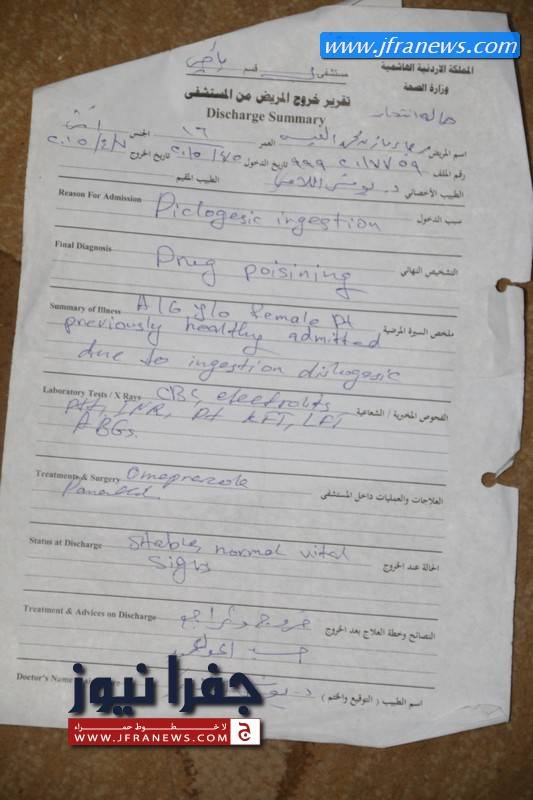 www.jfranews.com
المملكة الاردنية الهاشمية
وزارة الصحة
مستشفى قسم
تقرير خروج المريض من المستشفى
حاله انتحار
Discharge Summary
اسم المريض العمر ١٦ الجنس انثى
رقم الملف تاريخ الدخول تاريخ الخروج ٢٠١٥/٤/٧
الطبيب الأخصائي د. الطبيب المقيم
Reason For Admission Diclogesic ingestion سبب الدخول
Final Diagnosis Drug poisining التشخيص النهائي
Summary of Illness A 16 y/o female pt ملخص السيرة المرضية
previously healthy admitted
due to ingestion diclogesic
Laboratory Tests / X Rays CBC, electrolits الفحوص المخبرية / الشعاعية
PTT, INR, PT KFT, LFT
ABGs.
Treatments & Surgery Omeprazole العلاجات والعمليات داخل المستشفى
Status at Discharge Stable, normal vital الحالة عند الخروج
Signs
Treatment & Advices on Discharge خروج النصائح وخطة العلاج بعد الخروج
Doctor's Name د. اسم الطبيب ( التوقيع والختم )
جفرا نيوز
لا خطوط حمراء
WWW.JFRANEWS.COM